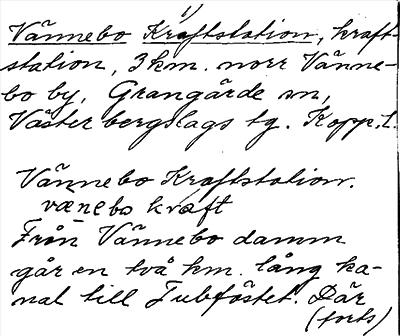 1)
Vännebo Kraftstation, kraft-
station, 3 km. norr Vänne-
bo by, Grangärde sn,
Väster bergslags tg. Kopp. L.
Vännebo Kraftstation.
vænebo kraft
Från Vännebo damm
går en två km. lång ka-
nal till Tubfästet. Där
(forts)